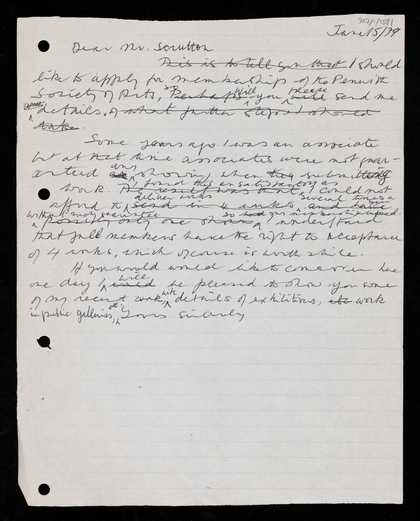 June 15/79
Dear Mr. Scrutton
This is to tell you that I should
like to apply for membership of the Penwith
Society of Arts, Perhaps Will you please send me
details, of what further steps I should
take.
Some years ago I was an associate
but at that time associates were not guar-
anteed any showing when they submitted
work. I found this unsatisfactory as
I could not
afford to send in 4 works, and have
only one shown, I understand
that full members have the right to acceptance
of 4 works, which of course is worth while.
If you would like to come over here
one day I shall be pleased to show you some
of my recent work with details of exhibitions, work
in public galleries, etc,
Yours sincerely